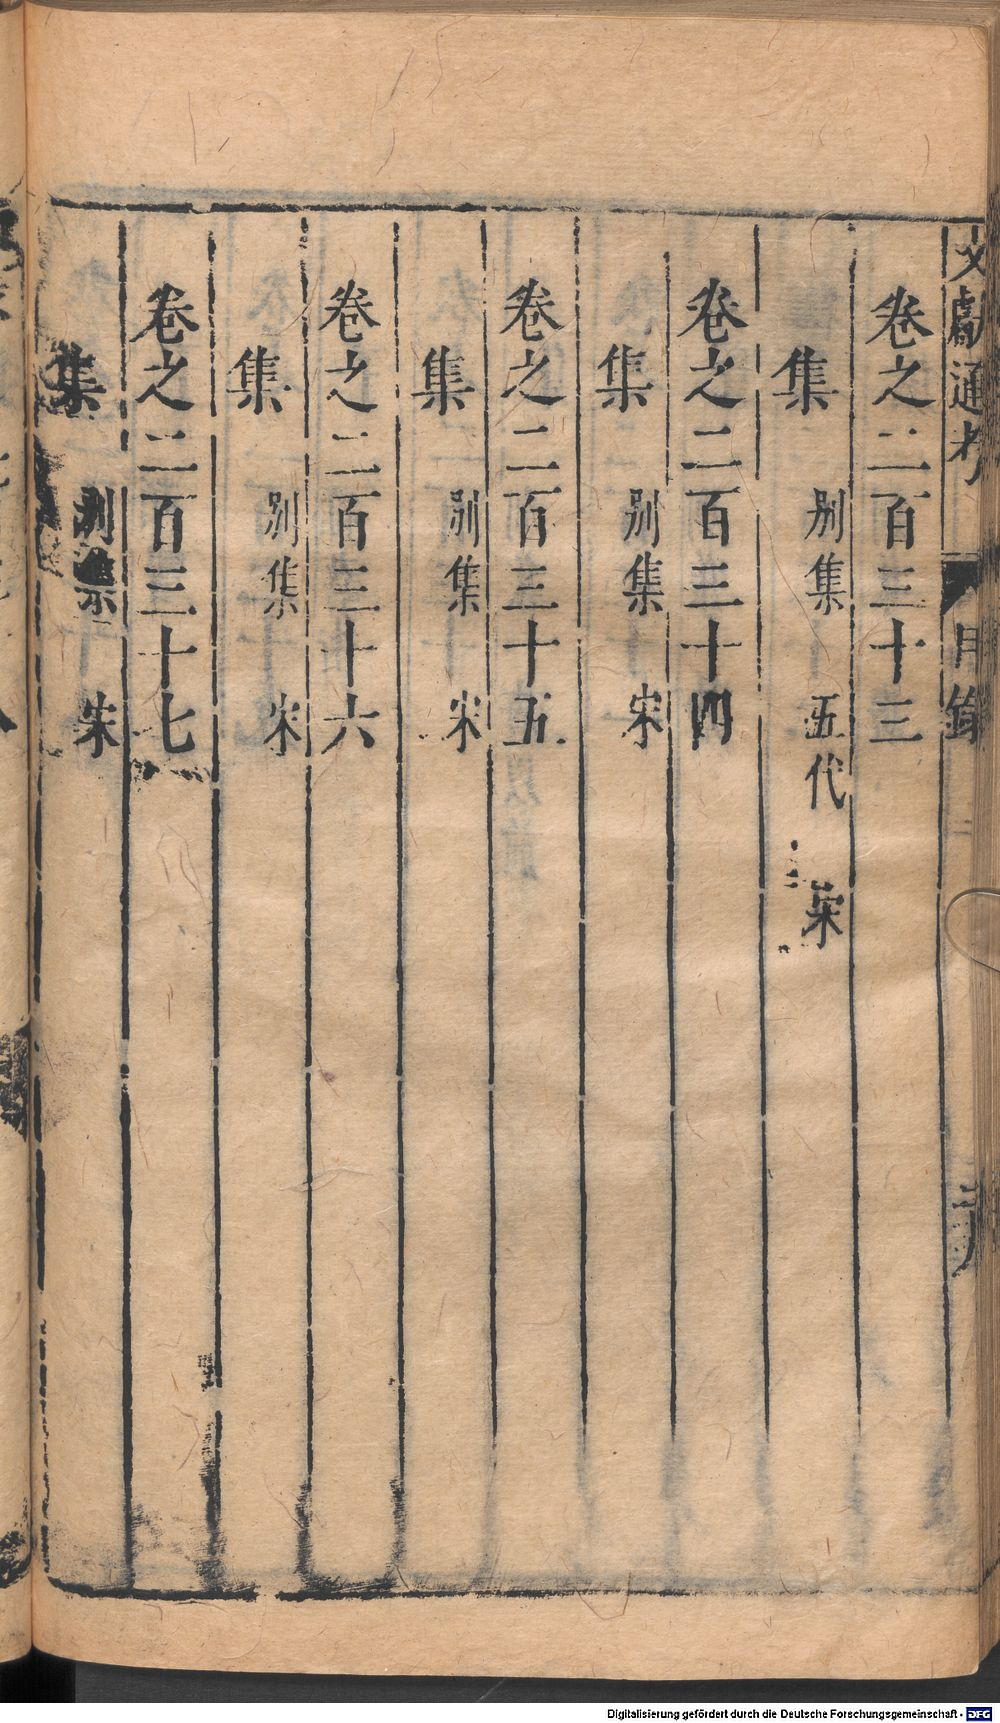 文獻通考 目錄
卷之二百三十三
集 別集 五代 宋
卷之二百三十四
集 別集 宋
卷之二百三十五
集 別集 宋
卷之二百三十六
集 別集 宋
卷之二百三十七
集 別集 宋
Digitalisierung gefördert durch die Deutsche Forschungsgemeinschaft - DFG